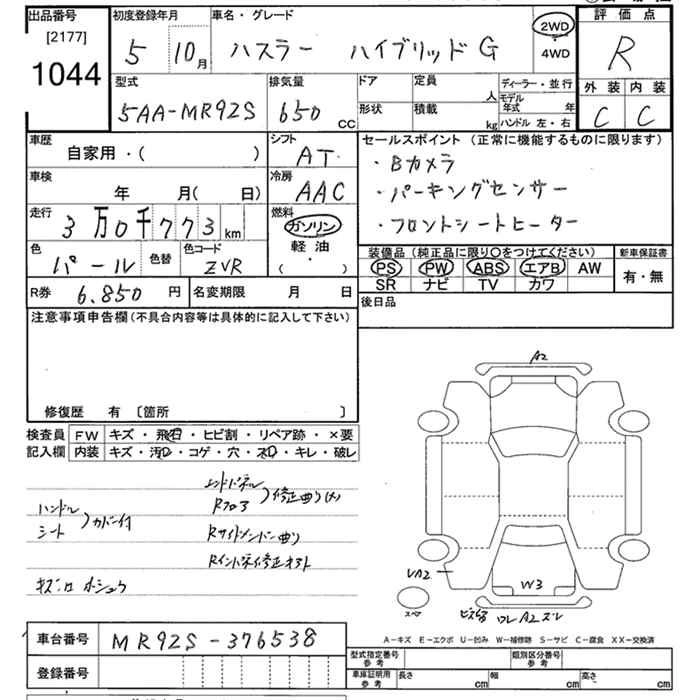 出品番号 初度登録年月 車名・グレード 評価点
[2177]
1044 5 10月 ハスラー ハイブリッドG 2WD ・ 4WD R
型式 排気量 ドア 定員 人 ディーラー・並行 外装 内装
5AA-MR92S 650 CC 形状 積載 kg モデル年式 年 ハンドル 左・右 C C
車歴 自家用・( ) シフト AT セールスポイント (正常に機能するものに限ります)
・Bカメラ
車検 年 月( 日) 冷房 AAC ・パーキングセンサー
走行 3万0千773km 燃料 ガソリン 軽油 ・( ) ・フロントシートヒーター
色 パール 色替 色コード ZVR 装備品(純正品に限り○をつけてください) 新車保証書
PS PW ABS エアB AW 有・無
SR ナビ TV カワ
R券 6,850円 名変期限 月 日 後日品
注意事項申告欄(不具合内容等は具体的に記入して下さい)
修復歴 有 〔箇所 〕
検査員 FW キズ・飛石・ヒビ割・リペア跡・×要
記入欄 内装 キズ・汚レ・コゲ・穴・スレ・キレ・破レ
ハンドル シート カバー付
エンドパネル Rフロア 修正曲り(×)
Rサイドメンバー曲り
Rインパネ修正
A2
UA2
W3
スペア
A-キズ E-エクボ U-凹み W-補修跡 S-サビ C-腐食 XX-交換済
車台番号 MR92S-376538
登録番号
型式指定番号 参考 類別区分番号 参考
車庫証明用 参考 長さ cm 幅 cm 高さ cm